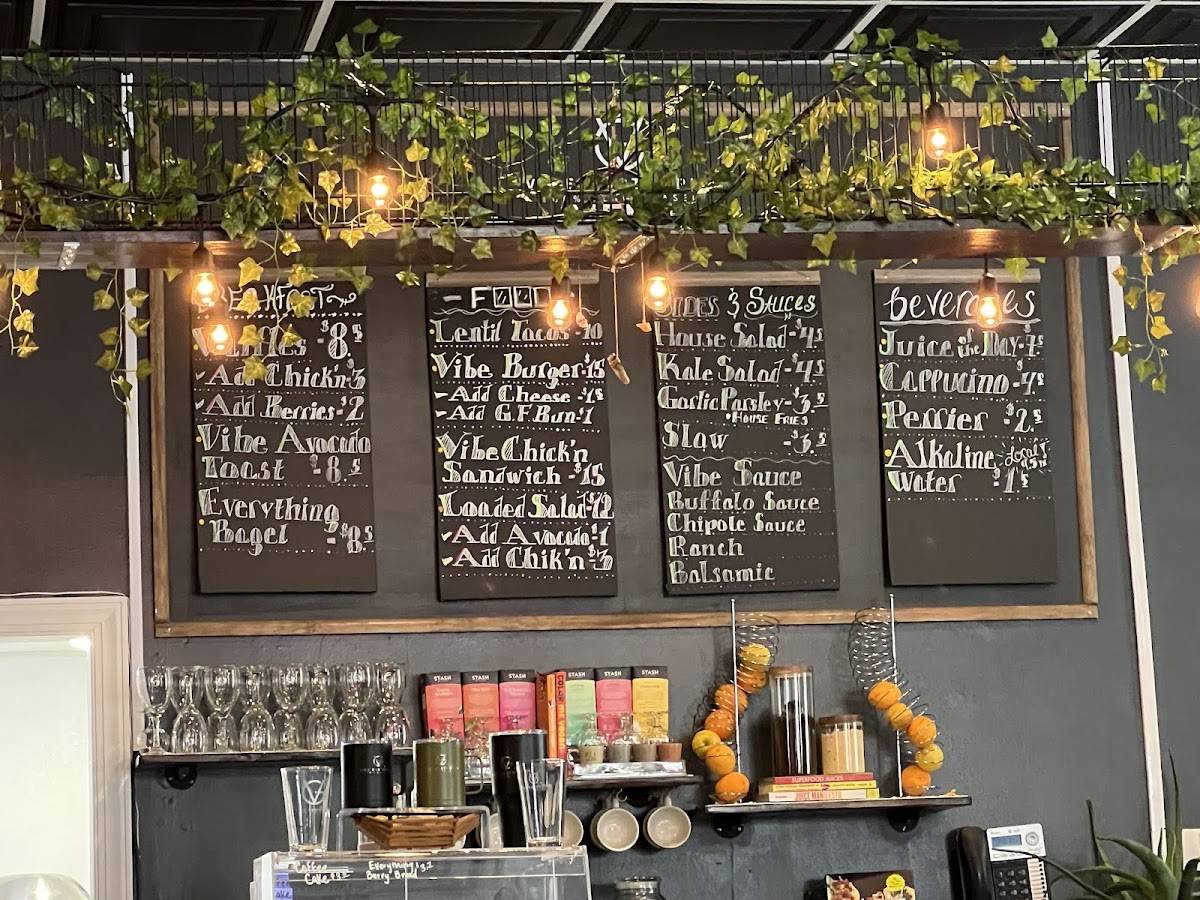 Waffles - $8.5
- Add Chick'n - 3
- Add Berries - $2
Vibe Avocado
Toast - $8.5
Everything
Bagel - $8.5
- FOOD
Lentil Tacos - 10
Vibe Burger - 15
- Add Cheese -
- Add G.F. Bun - $1
Vibe Chick'n
Sandwich - $15
Loaded Salad - $12
- Add Avocado - 1
- Add Chik'n - $3
Sides & Sauces
House Salad - $4.5
Kale Salad - $4.5
Garlic Parsley - $3.5
House Fries
Slaw - $3.5
Vibe Sauce
Buffalo Sauce
Chipole Sauce
Ranch
Balsamic
beverages
Juice of the Day - 7.5
Cappucino - $4.5
Perrier - $2.5
Alkaline Local!
Water - $1.5
STASH STASH STASH STASH STASH STASH
SUPERFOOD JUICES
JUICE MANIFESTO
Coffee
Cake
Everything
Berry Bread